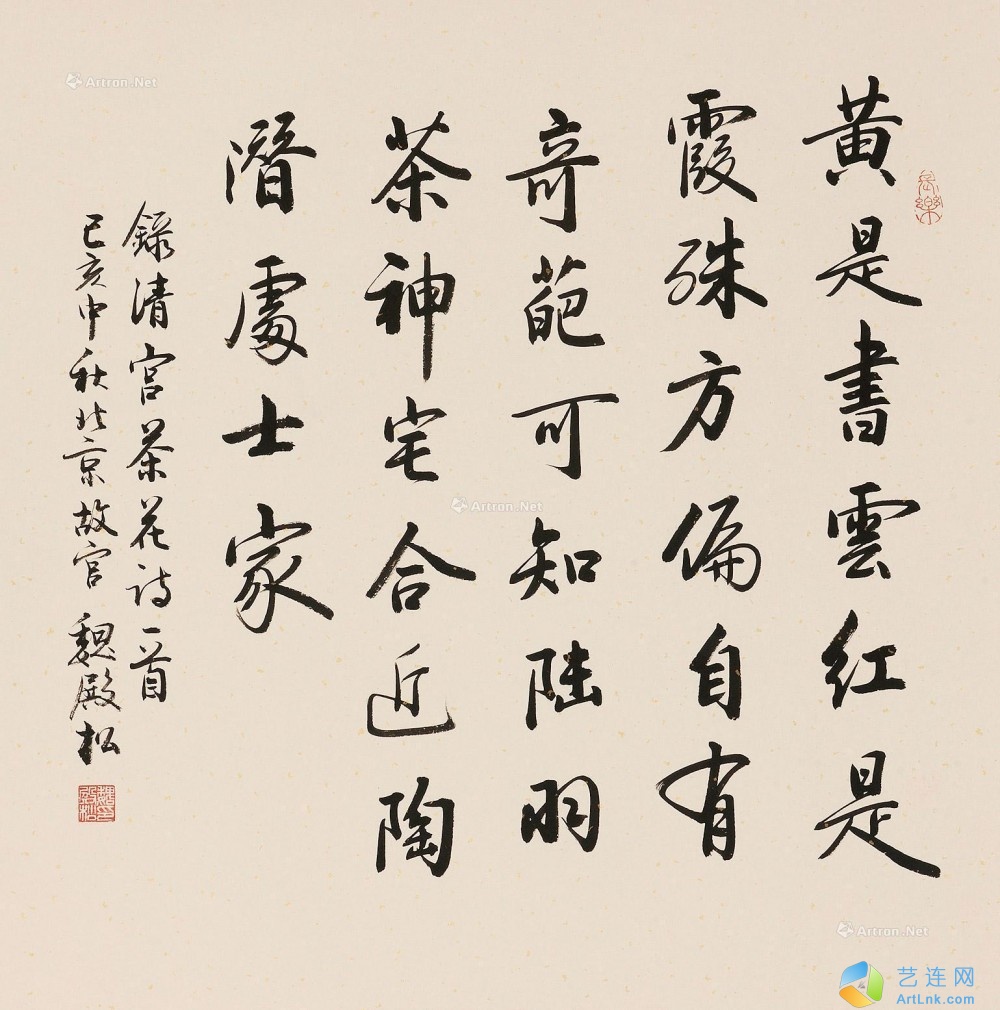 黄是書雲红是
霞殊方偏自有
奇葩可知陸羽
茶神宅合近陶
潛處士家
録清宫茶花诗一首
己亥中秋北京故宫魏殿松
Artron.Net
Artron.Net
Artron.Net
艺连网
ArtLnk.com